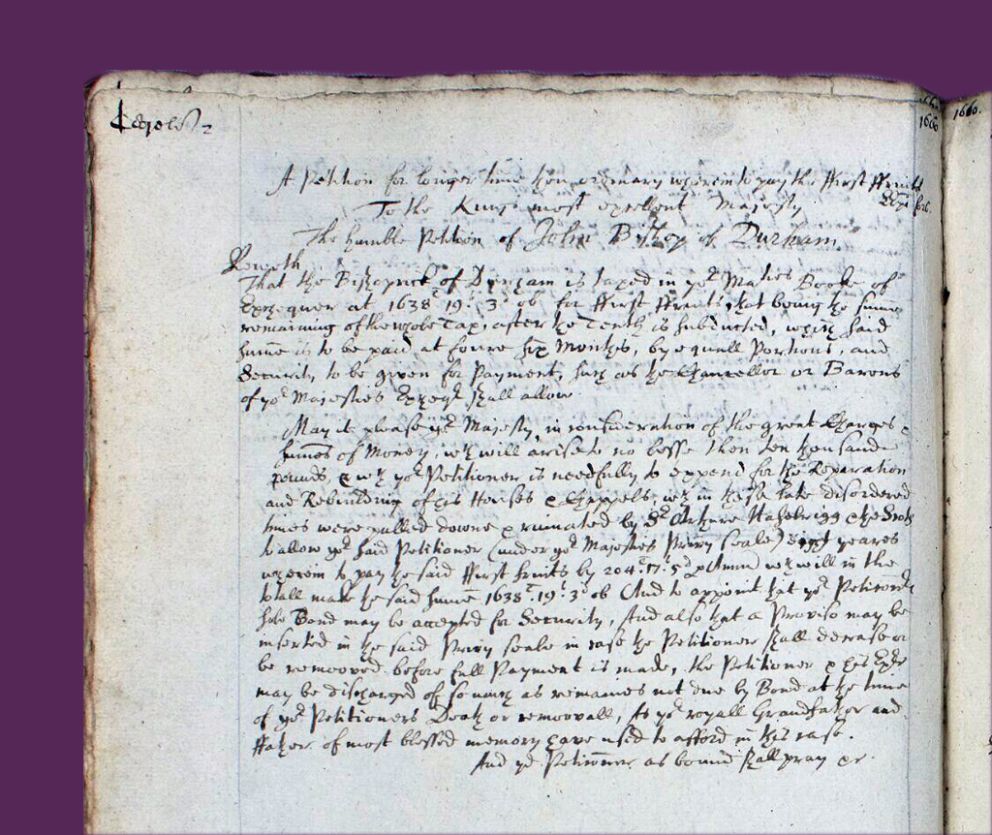 1660
1660.
A Petition for longer time then ordinary wherein to pay the ffirst ffruits
To the Kings most excellent Majesty
The humble Petition of John Bishop of Durham.
Sheweth
That the Bishoprick of Duresm is taxed in yor Maties Booke of
Exchequer at 1638l 19s 3d ob for ffirst ffruits, that being the summe
remaining of the whole Tax, after the Tenth is substracted, which said
summe is to be paid at foure six Months, by equall Portions, and
Security to be given for Payment, such as the Chancellor or Barons
of yor Majesties Excheqr shall allow.
May it please yor Majesty, in consideration of the great Charges &
summes of Money, wch will arise to no lesse then ten thousand
pounds, & wch yor Petitioner is needfully to expend for the Reparation
and Rebuilding of his Houses & Chappels, wch in these late disordered
times were pulled downe & ruinated by Sr Arthure Haselrigg & the Scots
to allow yor said Petitioner (under yor Majesties Privy Seale) Eight yeares
wherein to pay the said ffirst fruits by 204l 17s 5d p Annum wch will in the
whole make the said summe 1638l 19s 3d ob And to appoint that yor Petitioners
sole Bond may be accepted for Security, And also that a Proviso may be
inserted in the said Privy Seale in case the Petitioner shall decease or
be remooved before full Payment is made, the Petitioner & his Exrs
may be discharged of so much as remaines not due by Bond at the time
of yor Petitioners Death or remoovall, As yor royall Grandfather and
ffather of most blessed memory have used to afford in this case.
And yor Petitioner as bound shall pray &c.